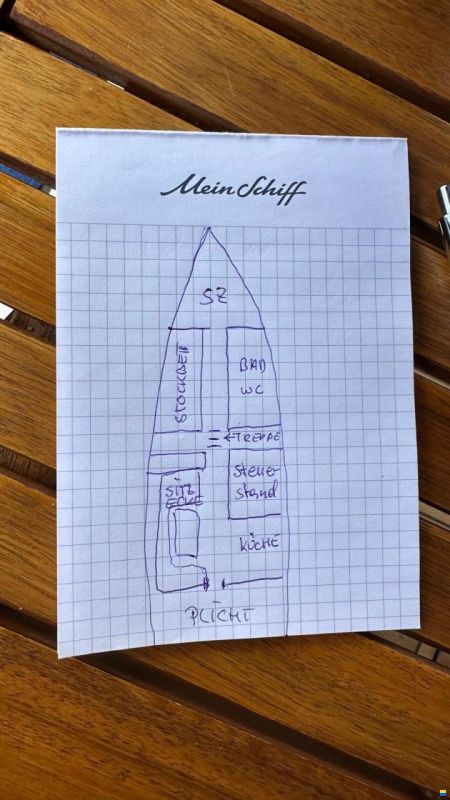 Mein Schiff
SZ
STOCKBETT
BAD
WC
←TREPPE
Steuer
stand
SITZ
ECKE
KÜCHE
PLICHT